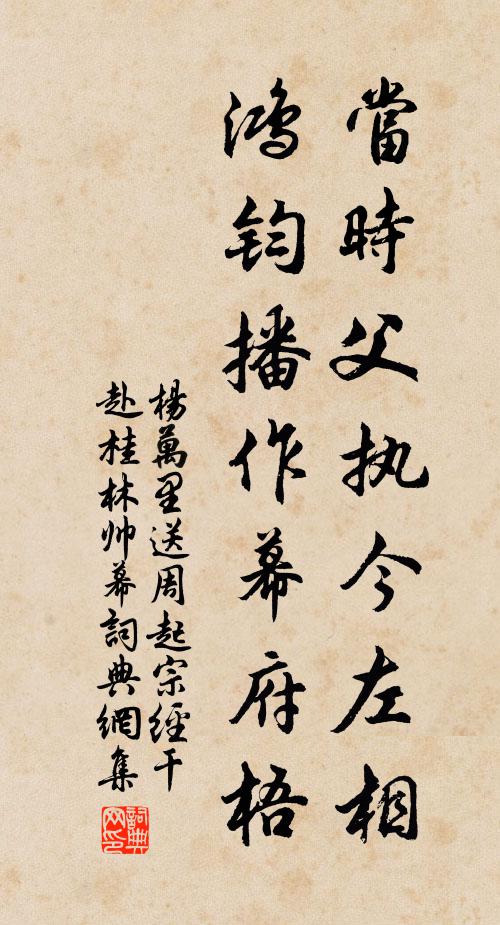 當時父执今左相
鸿钧播作幕府梧
楊萬里送周起宗經干
赴桂林帅幕詞典網集
詞典
网印